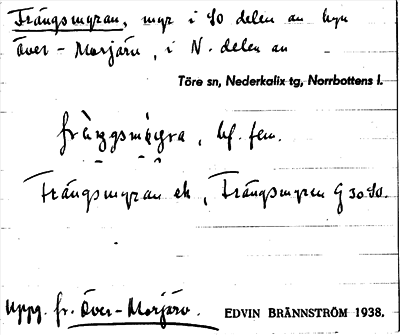 Trängsmyran, myr i SO delen av byn
Över-Morjärv, i N. delen av
Töre sn, Nederkalix tg, Norrbottens l.
bf. fem.
Trängsmyran ek, Trängsmyren G 30 SO.
Uppg. fr. Över-Morjärv. EDVIN BRÄNNSTRÖM 1938.